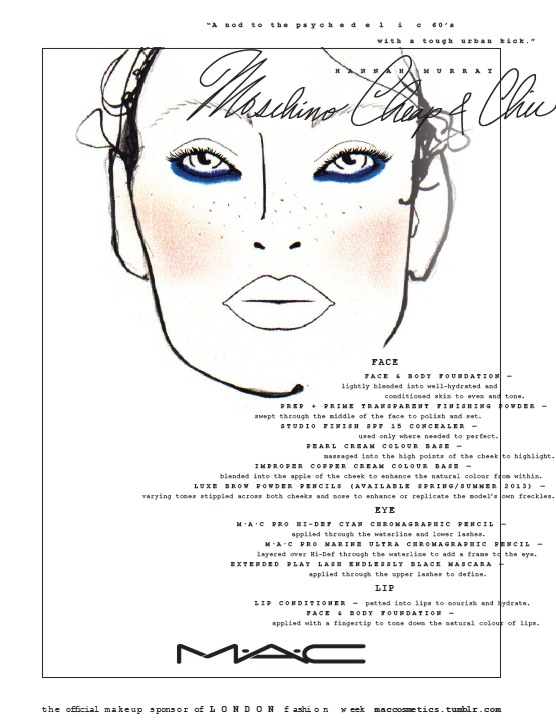 "A nod to the psychedelic 60's
with a tough urban kick."
HANNAH MURRAY
Moschino Cheap & Chic
FACE
FACE & BODY FOUNDATION —
lightly blended into well-hydrated and
conditioned skin to even and tone.
PREP + PRIME TRANSPARENT FINISHING POWDER —
swept through the middle of the face to polish and set.
STUDIO FINISH SPF 15 CONCEALER —
used only where needed to perfect.
PEARL CREAM COLOUR BASE —
massaged into the high points of the cheek to highlight.
IMPROPER COPPER CREAM COLOUR BASE —
blended into the apple of the cheek to enhance the natural colour from within.
LUXE BROW POWDER PENCILS (AVAILABLE SPRING/SUMMER 2013) —
varying tones stippled across both cheeks and nose to enhance or replicate the model's own freckles.
EYE
M·A·C PRO HI-DEF CYAN CHROMAGRAPHIC PENCIL —
applied through the waterline and lower lashes.
M·A·C PRO MARINE ULTRA CHROMAGRAPHIC PENCIL —
layered over Hi-Def through the waterline to add a frame to the eye.
EXTENDED PLAY LASH ENDLESSLY BLACK MASCARA —
applied through the upper lashes to define.
LIP
LIP CONDITIONER — patted into lips to nourish and hydrate.
FACE & BODY FOUNDATION —
applied with a fingertip to tone down the natural colour of lips.
M·A·C
the official makeup sponsor of LONDON fashion week maccosmetics.tumblr.com